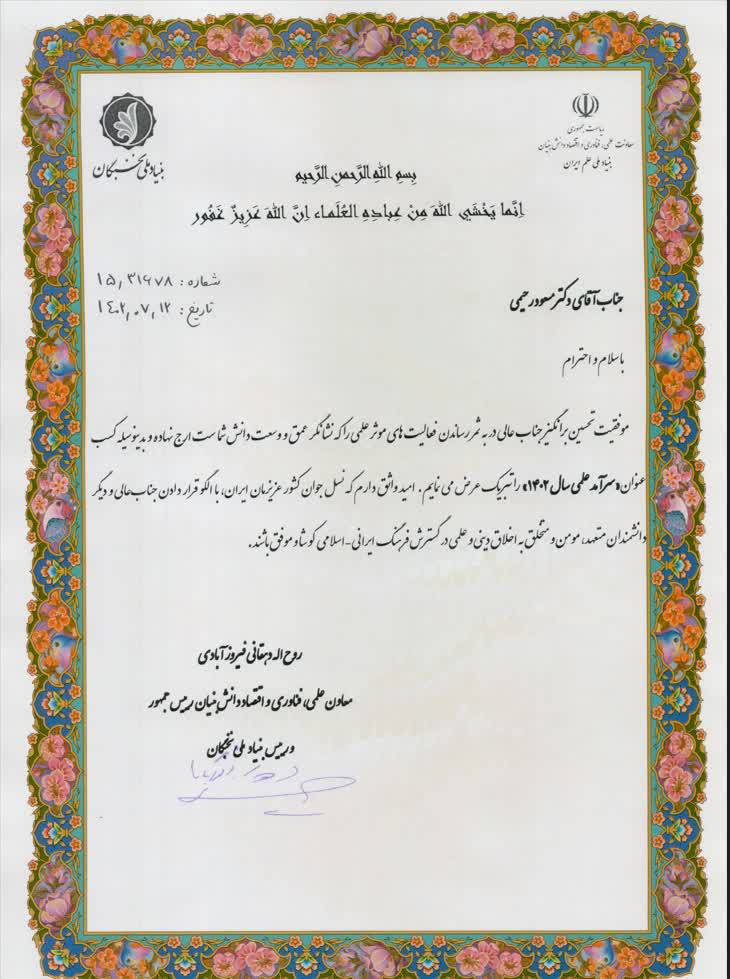 ریاست جمهوری
معاونت علمی، فناوری و اقتصاد دانش بنیان
بنیاد ملی علم ایران
بنیاد ملی نخبگان
بِسمِ اللهِ الرَّحمنِ الرَّحیم
اِنَّما یَخْشَی اللهَ مِنْ عِبادِهِ العُلَماء اِنَّ اللهَ عَزیزٌ غَفُور
شماره: ۱۵٫۳۱۶۷۸
تاریخ: ۱۴۰۲٫۰۷٫۱۲
جناب آقای دکتر مسعود رحیمی
باسلام و احترام
موفقیت تحسین برانگیز جناب عالی در به ثمر رساندن فعالیت های موثر علمی را که نشانگر عمق و وسعت دانش شماست ارج نهاده و بدینوسیله کسب
عنوان «سرآمد علمی سال ۱۴۰۲» را تبریک عرض می نمایم. امید واثق دارم که نسل جوان کشور عزیزمان ایران، با الگو قرار دادن جناب عالی و دیگر
دانشمندان متعهد، مومن و متخلق به اخلاق دینی و علمی در گسترش فرهنگ ایرانی-اسلامی کوشا و موفق باشند.
روح اله دهقانی فیروزآبادی
معاون علمی، فناوری و اقتصاد دانش بنیان رییس جمهور
و رییس بنیاد ملی نخبگان